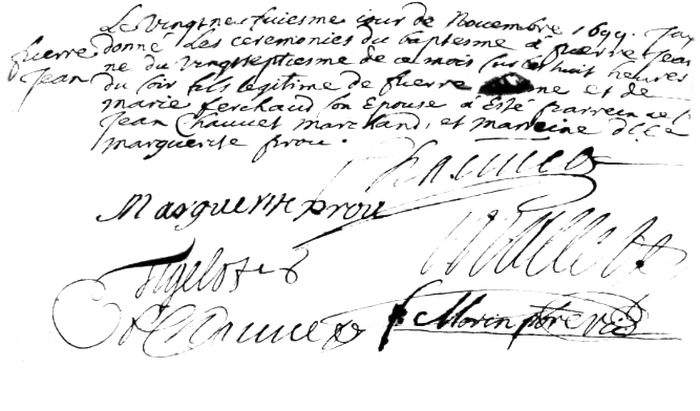 Le vingtneufuiesme jour de Novembre 1699. Jay
pierre donné Les cérémonies du baptesme a pierre Jean
Jean ne du vingtseptiesme de ce mois sur les huit heures
du soir fils legitime de pierre et de
marie ferchaud son Epouse a Esté parrein
Jean Chauvet marchand, et marreine d
marguerite prou.
Chauvet
Marguerite prou
Chauvet
Morin